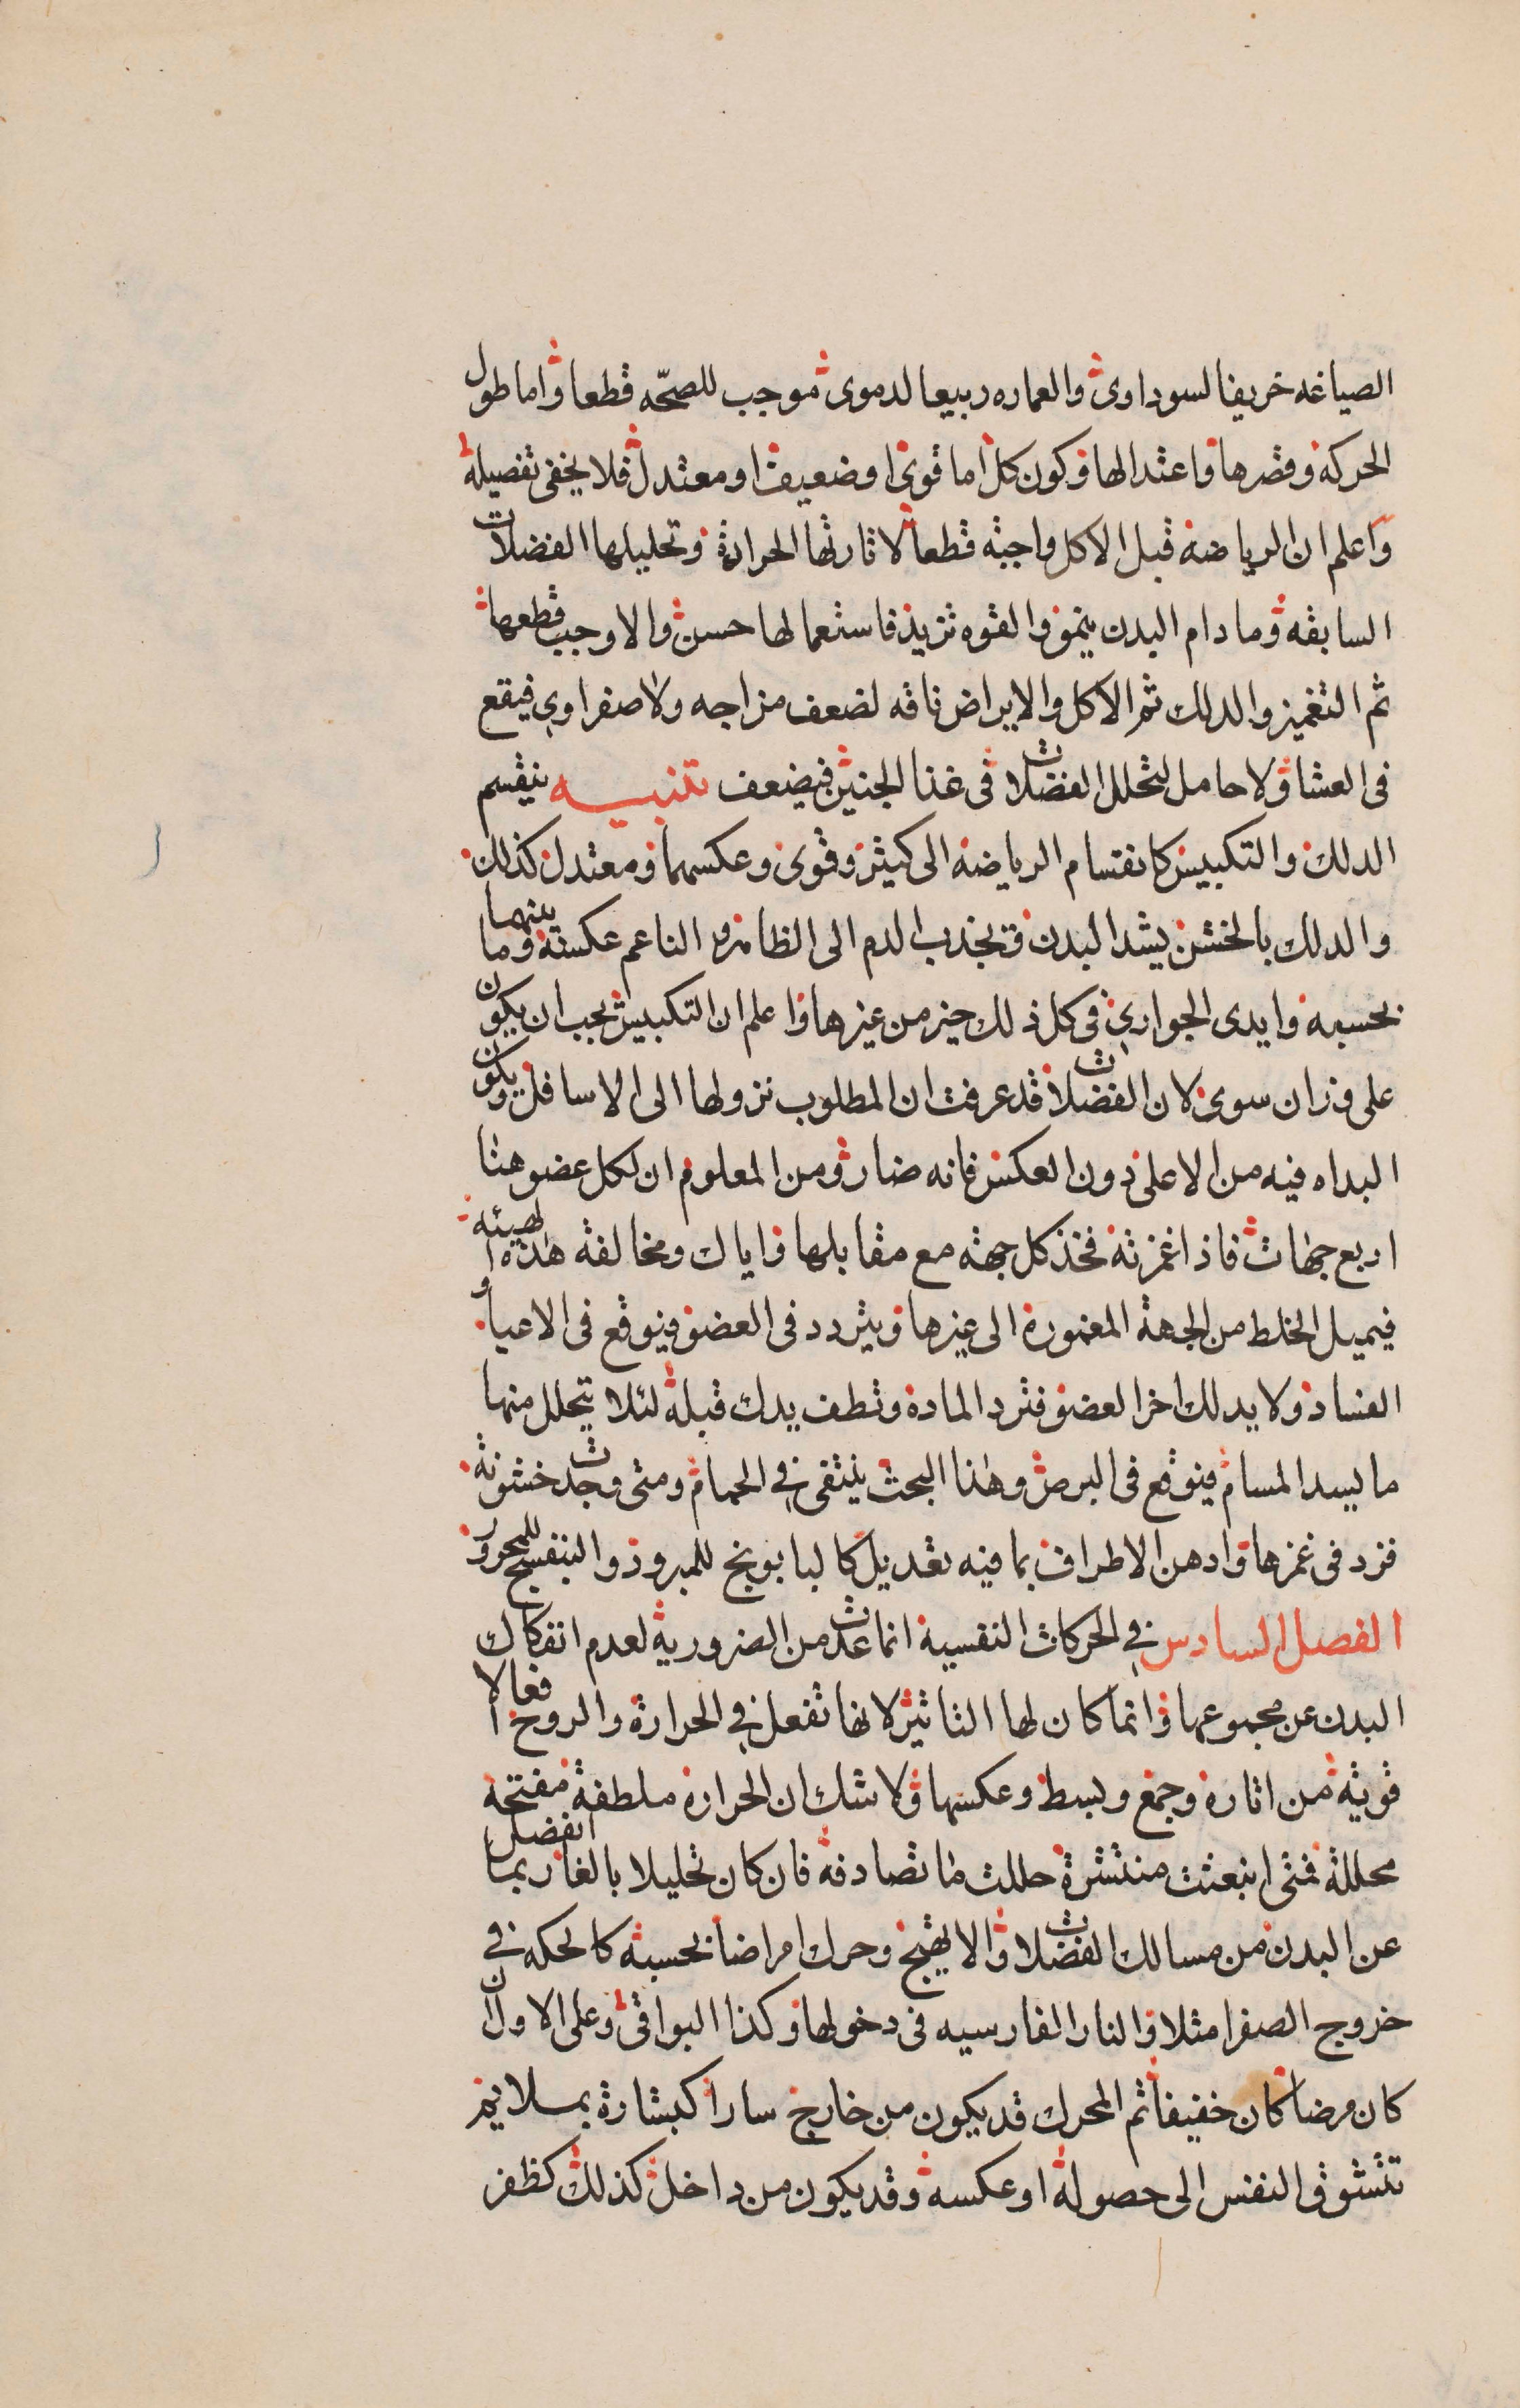 الصياغه خريفا لسوداوى والعماره ربيعا لدموى موجب للصحّه قطعا واما طول
الحركة وقصرها واعتدالها وكون كل اما قوى او ضعيف او معتدل فلا يخفى تفصيله
واعلم ان الرياضة قبل الاكل واجبة قطعا لاثارتها الحرارة وتحليلها الفضلات
السابقه وما دام البدن ينمو والقوه تزيد فاستعمالها حسن والا وجب قطعها
ثم التغميز والدلك ثم الاكل والا يراض ناقه لضعف مزاجه ولا صفراوي فيقع
فى العشا ولا حامل لتحلل الفضلات فى غذا الجنين فيضعف تنبيه ينقسم
الدلك والتكبيس كانقسام الرياضة الى كثير وقوى وعكسهما ومعتدل كذلك
والدلك بالخشن يشد البدن ويجذب الدم الى الظاهر والناعم عكسه وما بينهما
بحسبه وايدى الجواري فى كل ذلك خير من غيرها واعلم ان التكبيس يجب ان يكون
على وزان سوى لان الفضلات قد عرفت ان المطلوب نزولها الى الاسافل ويكون
البداه فيه من الاعلى دون العكس فانه ضار ومن المعلوم ان لكل عضو هنا
اربع جهات فاذا غمزته فخذ كل جهة مع مقابلها واياك ومخالفة هذه الهيئه
فيميل الخلط من الجهة المغمورة الى غيرها ويتردد فى العضو فيوقع فى الاعيا او
الفساد ولا يدلك اخر العضو فترد المادة وتطف يدك قبله لئلا يتحلل منها
ما يسد المسام فيوقع فى البرص وهذا البحث ينتقى في الحمام ومتى وجدت خشونة
فزد فى غمزها وادهن الاطراف بما فيه تعديل كالبابونج للمبرود والبنفسج للمحرور
الفصل السادس في الحركات النفسية انما عدت من الضرورية لعدم انفكاك
البدن عن مجموعها وانما كان لها التاثير لانها تفعل في الحرارة والروح افعالا
قوية من اثارة وجمع وبسط وعكسها ولا شك ان الحرارة ملطفة مفتحة
محللة فمتى انبعثت منتشرة حللت ما تصادفه فان كان تحليلا بالغا ربما انفصل
عن البدن من مسالك الفضلات والا يهيج وحرك امراضا بحسبه كالحكه في
خروج الصفرا مثلا والنار الفارسيه فى دخولها وكذا البواقى وعلى الاول ان
كان مرضا كان خفيفا ثم المحرك قد يكون من خارج سارا كبشارة بملايم
تتشوق النفس الى حصوله او عكسه وقد يكون من داخل كذلك كظفر